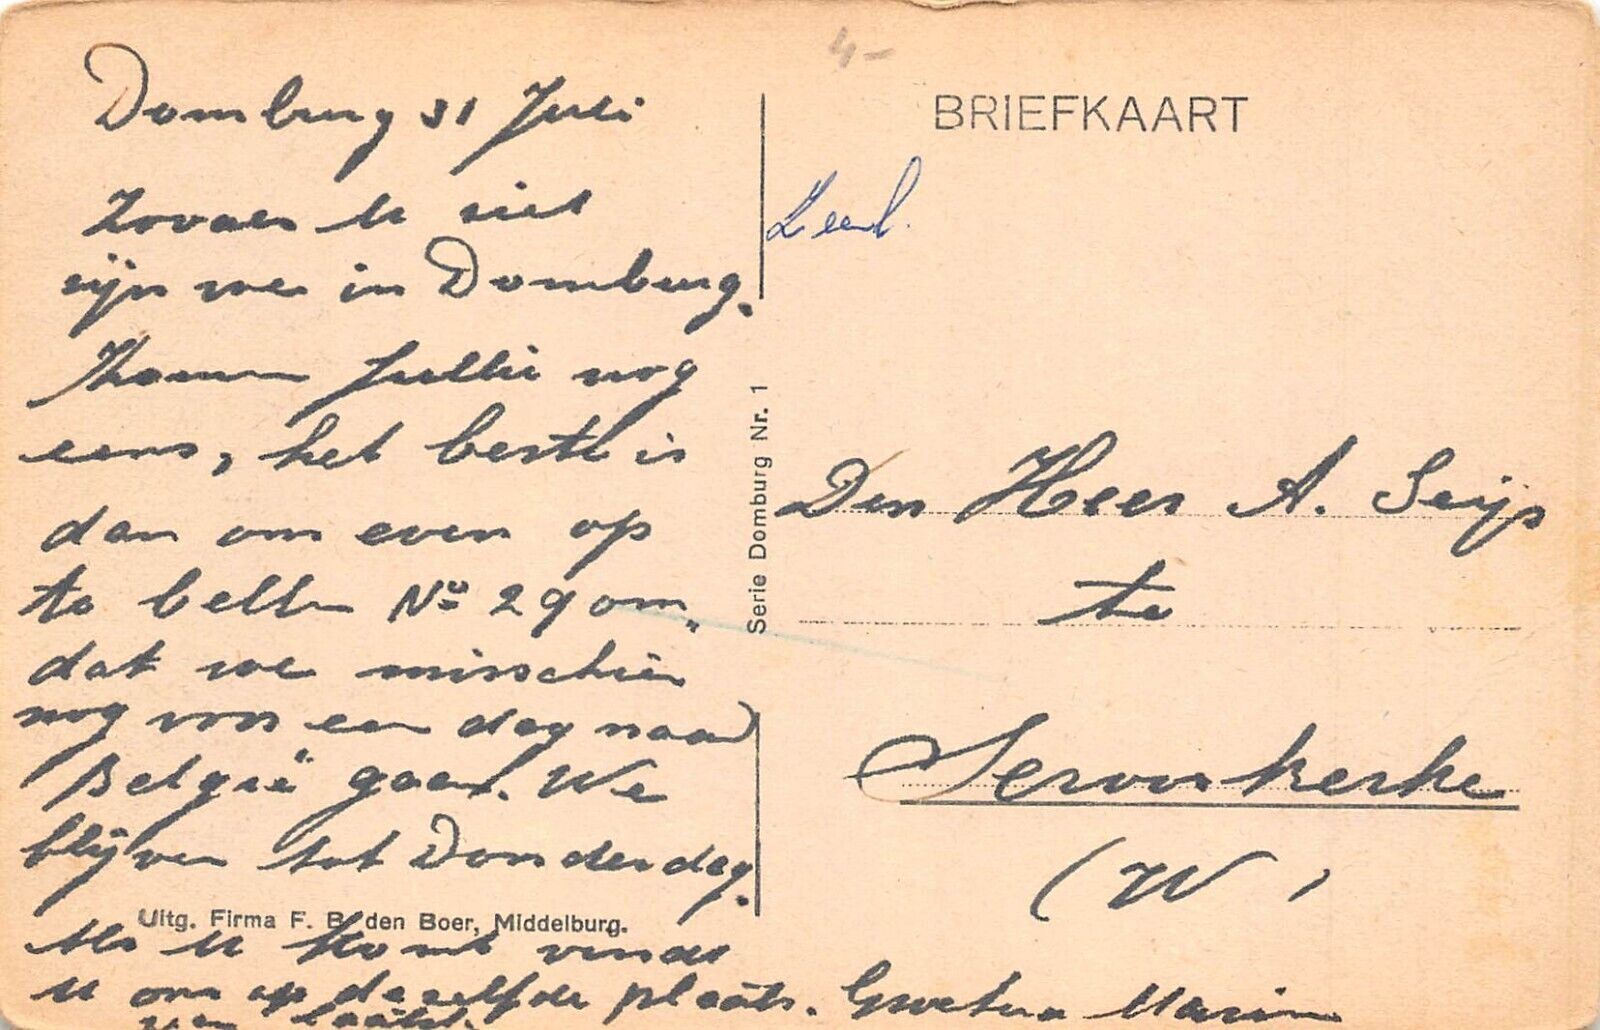 4-
Domburg 31 Juli
Zooals U ziet
zijn we in Domburg.
Komen Jullie nog
eens, het beste is
dan om even op
te bellen No 29 om„
dat we misschien
nog voor een dag naar
België gaan. We
blijven tot Donderdag.
Als U komt vindt
U ons op dezelfde plaats.
van laatst.
Groeten
Uitg. Firma F. B. den Boer, Middelburg.
Serie Domburg Nr. 1
BRIEFKAART
Zeel.
Den Heer A. Seijs
te
Serooskerke
(W)